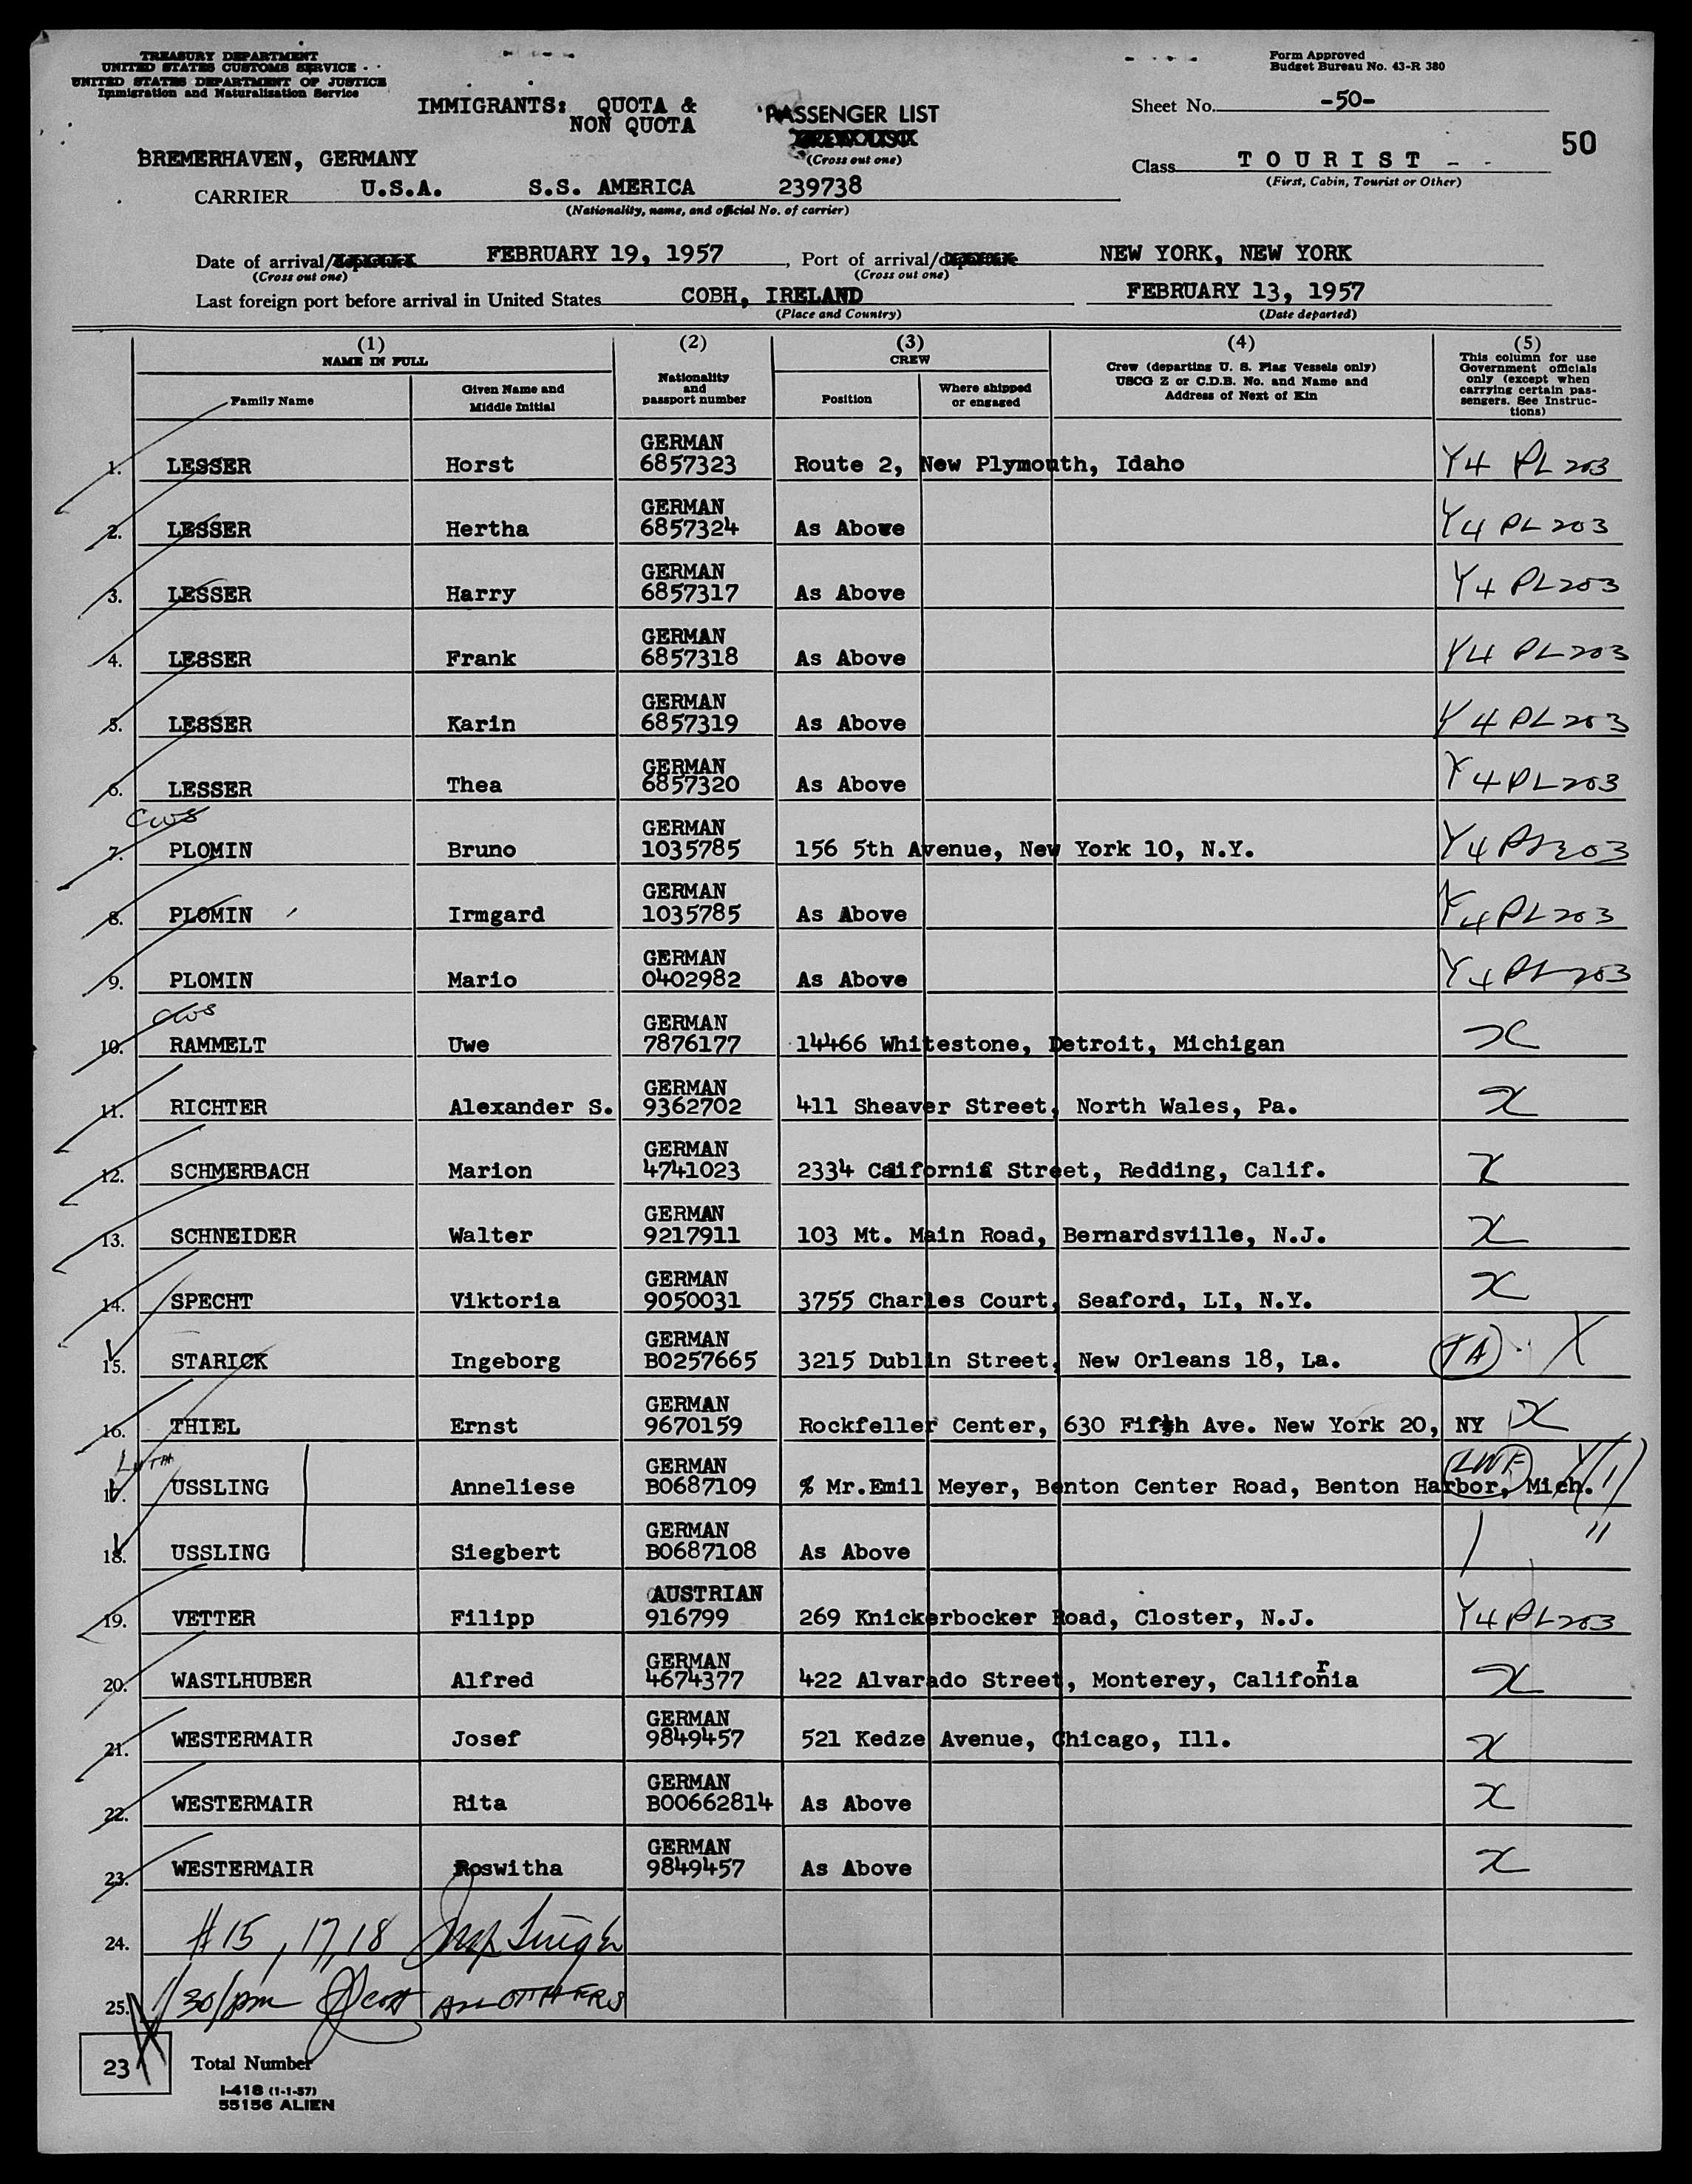 TREASURY DEPARTMENT
UNITED STATES CUSTOMS SERVICE
UNITED STATES DEPARTMENT OF JUSTICE
Immigration and Naturalization Service
Form Approved
Budget Bureau No. 43-R 380
IMMIGRANTS: QUOTA &
NON QUOTA
PASSENGER LIST
(Cross out one)
Sheet No. -50-
50
BREMERHAVEN, GERMANY
Class TOURIST
(First, Cabin, Tourist or Other)
CARRIER U.S.A. S.S. AMERICA 239738
(Nationality, name, and official No. of carrier)
Date of arrival/departure FEBRUARY 19, 1957, Port of arrival/departure NEW YORK, NEW YORK
(Cross out one) (Cross out one)
Last foreign port before arrival in United States COBH, IRELAND FEBRUARY 13, 1957
(Place and Country) (Date departed)
(1) NAME IN FULL
Family Name
Given Name and Middle Initial
(2)
Nationality and passport number
(3)
CREW
Position
Where shipped or engaged
(4)
Crew (departing U. S. Flag Vessels only)
USCG Z or C.D.B. No. and Name and
Address of Next of Kin
(5)
This column for use
Government officials
only (except when
carrying certain pas-
sengers. See Instruc-
tions)
1. LESSER Horst GERMAN 6857323 Route 2, New Plymouth, Idaho Y4 PL 203
2. LESSER Hertha GERMAN 6857324 As Above Y4 PL 203
3. LESSER Harry GERMAN 6857317 As Above Y4 PL 203
4. LESSER Frank GERMAN 6857318 As Above Y4 PL 203
5. LESSER Karin GERMAN 6857319 As Above Y4 PL 203
6. LESSER Thea GERMAN 6857320 As Above Y4 PL 203
CWS
7. PLOMIN Bruno GERMAN 1035785 156 5th Avenue, New York 10, N.Y. Y4 PL 203
8. PLOMIN Irmgard GERMAN 1035785 As Above Y4 PL 203
9. PLOMIN Mario GERMAN 0402982 As Above Y4 PL 203
CWS
10. RAMMELT Uwe GERMAN 7876177 14466 Whitestone, Detroit, Michigan X
11. RICHTER Alexander S. GERMAN 9362702 411 Sheaver Street, North Wales, Pa. X
12. SCHMERBACH Marion GERMAN 4741023 2334 Caifornia Street, Redding, Calif. X
13. SCHNEIDER Walter GERMAN 9217911 103 Mt. Main Road, Bernardsville, N.J. X
14. SPECHT Viktoria GERMAN 9050031 3755 Charles Court, Seaford, LI, N.Y. X
15. STARICK Ingeborg GERMAN B0257665 3215 Dublin Street, New Orleans 18, La. X
16. THIEL Ernst GERMAN 9670159 Rockfeller Center, 630 Fifth Ave. New York 20, NY X
LUTH
17. USSLING Anneliese GERMAN B0687109 % Mr.Emil Meyer, Benton Center Road, Benton Harbor, Mich. LWF
18. USSLING Siegbert GERMAN B0687108 As Above "
19. VETTER Filipp AUSTRIAN 916799 269 Knickerbocker Road, Closter, N.J. Y4 PL 203
20. WASTLHUBER Alfred GERMAN 4674377 422 Alvarado Street, Monterey, California X
21. WESTERMAIR Josef GERMAN 9849457 521 Kedze Avenue, Chicago, Ill. X
22. WESTERMAIR Rita GERMAN B00662814 As Above X
23. WESTERMAIR Roswitha GERMAN 9849457 As Above X
24. #15, 17, 18
25. 1/30/pm ALL OTHERS
23 Total Number
I-418 (1-1-57)
55156 ALIEN